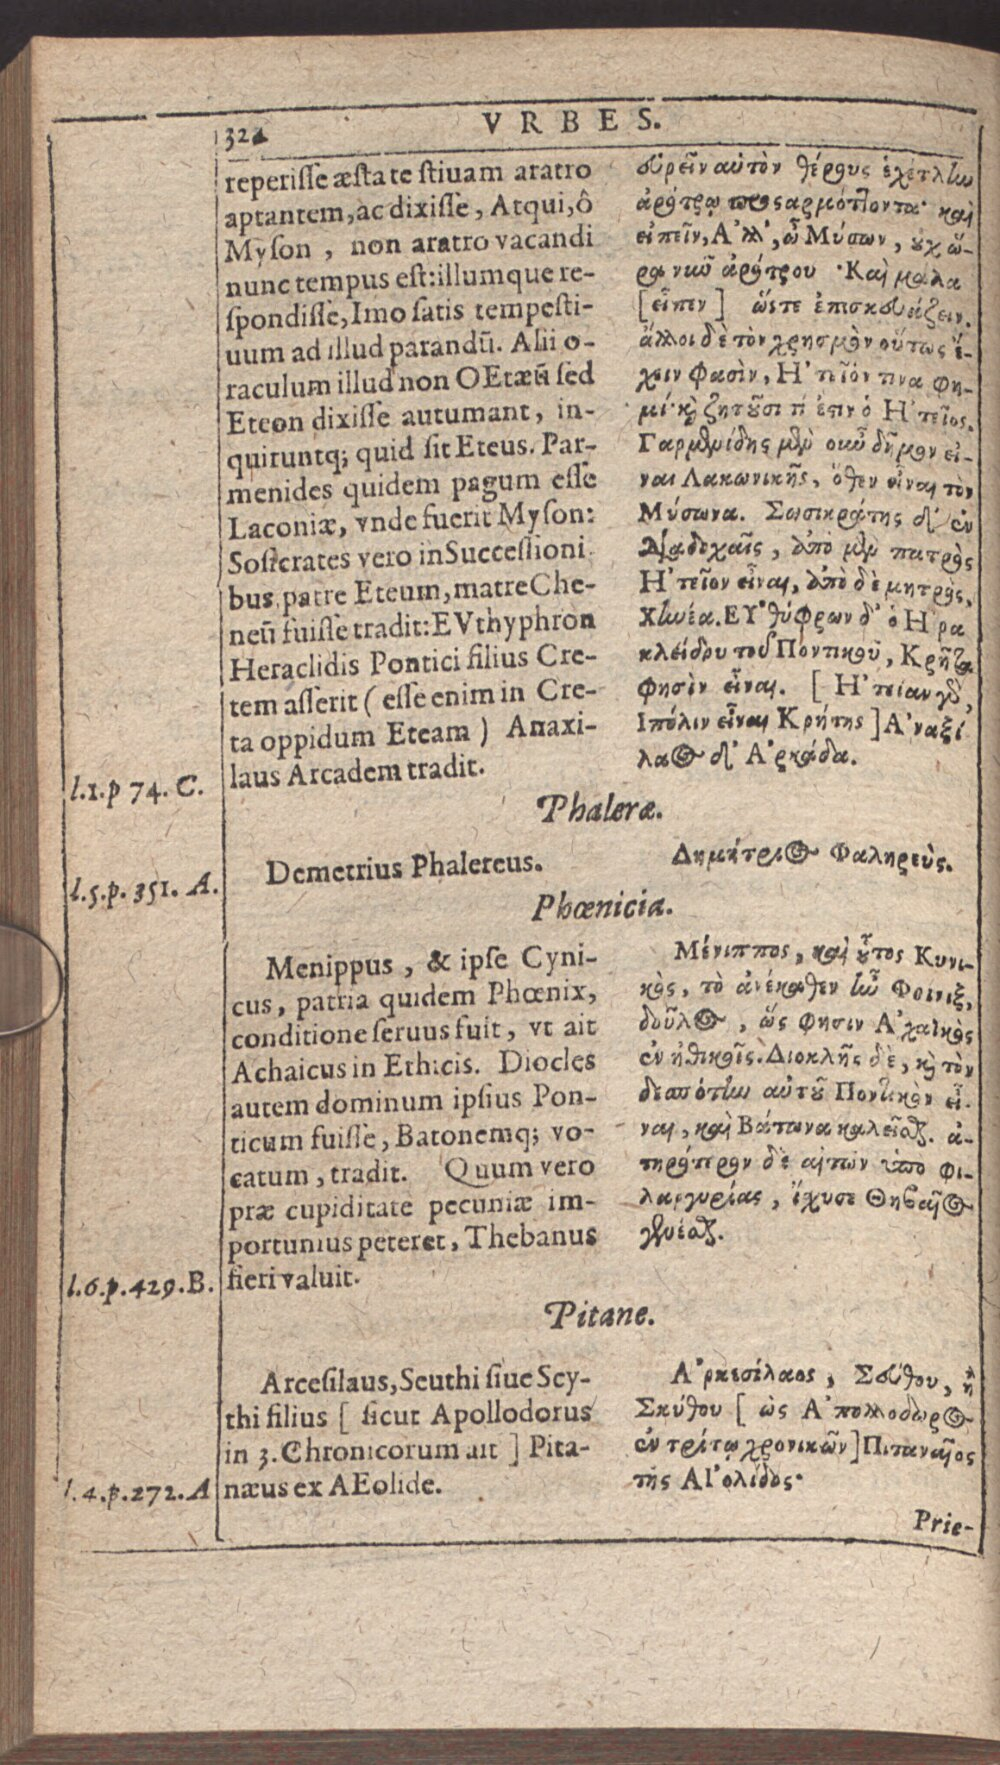 324
VRBES.
reperisse æstate stiuam aratro
aptantem, ac dixisse, Atqui, ô
Myson, non aratro vacandi
nunc tempus est: illumque re-
spondisse, Imo satis tempesti-
uum ad illud parandũ. Alii o-
raculum illud non OEtæũ sed
Eteon dixisse autumant, in-
quiruntq; quid sit Eteus. Par-
menides quidem pagum esse
Laconiæ, vnde fuerit Myson:
Sosicrates vero in Successioni
bus, patre Eteum, matre Che-
neũ fuisse tradit: EVthyphron
Heraclidis Pontici filius Cre-
tem asserit ( esse enim in Cre-
ta oppidum Eteam ) Anaxi-
laus Arcadem tradit.
l.1.p 74. C.
εὑρεῖν αὐτὸν θέρους ἐχέτλην
ἀρότρῳ προσαρμόττοντα· καὶ
εἰπεῖν, Α᾿λλ᾿, ὦ Μύσων, οὐχ ὥ-
ρα νῦν ἀρότρου· Καὶ μάλα
[εἶπεν] ὥστε ἐπισκευάζειν.
ἄλλοι δὲ τὸν χρησμὸν οὕτως ἔ-
χειν φασὶν, Η᾿τεῖόν τινα φη-
μί· καὶ ζητοῦσι τί ἐστιν ὁ Η᾿τεῖος.
Παρμενίδης μὲν οὖν δῆμον εἶ-
ναι Λακωνικῆς, ὅθεν εἶναι τὸν
Μύσωνα. Σωσικράτης δ᾿ ἐν
Διαδοχαῖς, ἀπὸ μὲν πατρὸς
Η᾿τεῖον εἶναι, ἀπὸ δὲ μητρὸς,
Χηνέα. ΕΥ᾿θύφρων δ᾿ ὁ Η῾ρα
κλείδου τοῦ Ποντικοῦ, Κρῆτα
φησὶν εἶναι. [ Η᾿τείαν γὸ,
πόλιν εἶναι Κρήτης ] Α᾿ναξί
λαος δ᾿ Α᾿ρκάδα.
Phaleræ.
Demetrius Phalereus.
l.5.p. 351. A.
Δημήτριος Φαληρεὺς.
Phœnicia.
Menippus, & ipse Cyni-
cus, patria quidem Phœnix,
conditione seruus fuit, vt ait
Achaicus in Ethicis. Diocles
autem dominum ipsius Pon-
ticum fuisse, Batonemq; vo-
catum, tradit. Quum vero
præ cupiditate pecuniæ im-
portunius peteret, Thebanus
fieri valuit.
l.6.p.429.B.
Μένιππος, καὶ οὗτος Κυνι-
κὸς, τὸ ἀνέκαθεν ἦν Φοινιξ,
δοῦλος, ὥς φησιν Α᾿χαϊκὸς
ἐν ἠθικοῖς. Διοκλῆς δὲ, καὶ τὸν
δεσπότην αὐτοῦ Ποντικὸν εἶ-
ναι, καὶ Βάτωνα καλεῖσθαι. ἀ-
τηρότερον δὲ αἰτῶν ὑπὸ φι-
λαργυρίας, ἴχυσε Θηβαῖος
γενέσθαι.
Pitane.
Arcesilaus, Seuthi siue Scy-
thi filius [ sicut Apollodorus
in 3. Chronicorum ait ] Pita-
næus ex AEolide.
l.4.p.272.A
Α᾿ρκεσίλαος, Σεύθου, ἢ
Σκύθου [ ὡς Α᾿πολλόδωρος
ἐν τρίτῳ χρονικῶν ] Πιταναῖος
τῆς ΑΙ᾿ολίδος·
Prie-